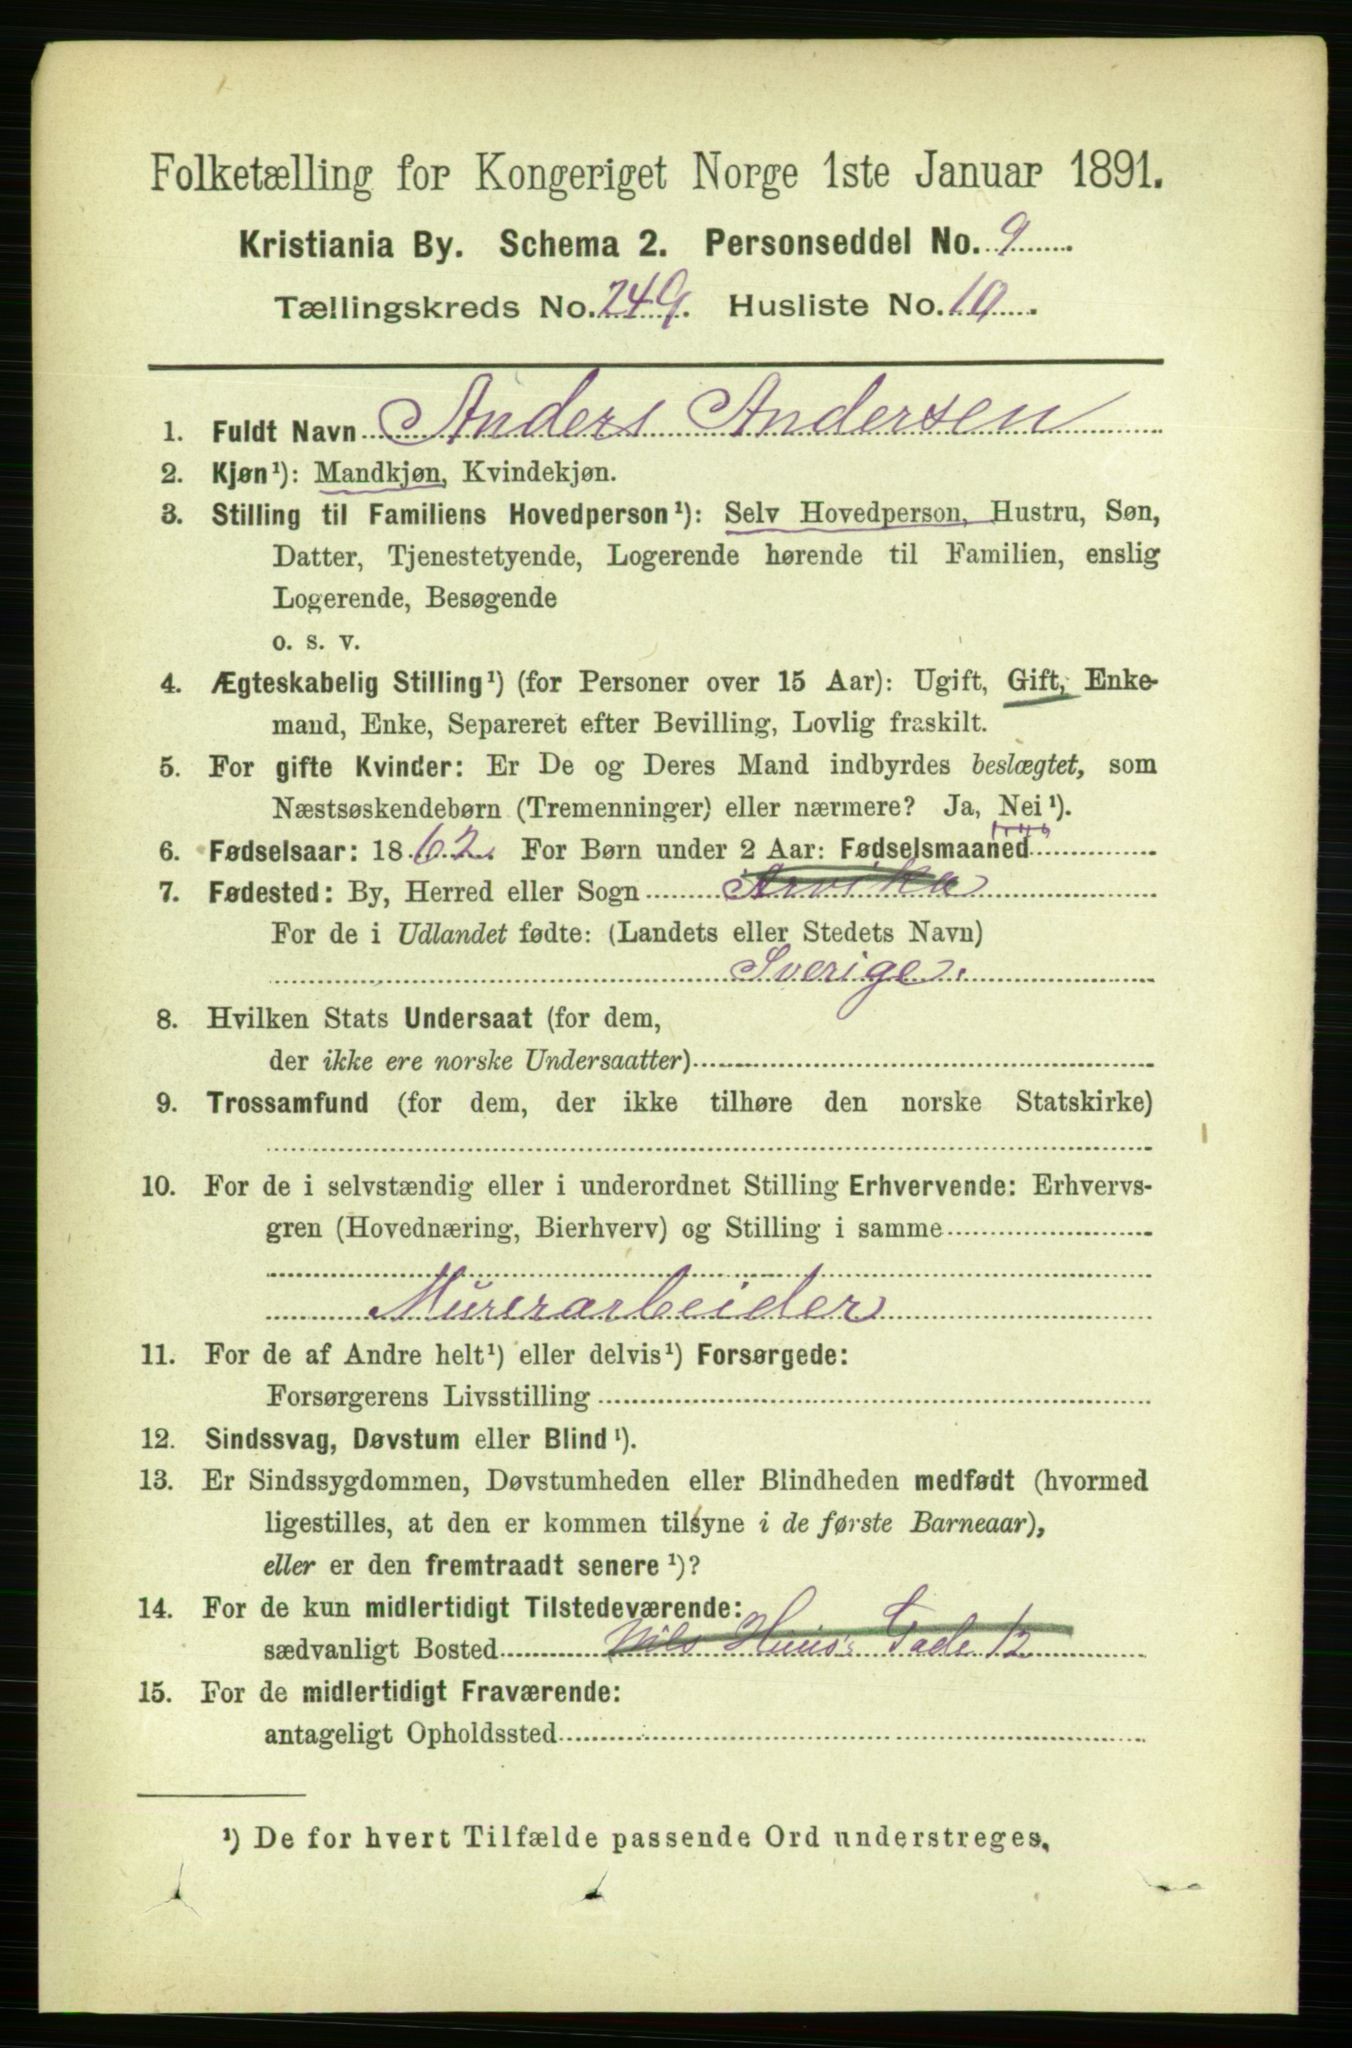 Folketælling for Kongeriget Norge 1ste Januar 1891.
Kristiania By. Schema 2. Personseddel No. 9
Tællingskreds No. 249. Husliste No. 10.
1. Fuldt Navn Anders Andersen
2. Kjøn¹): Mandkjøn, Kvindekjøn.
3. Stilling til Familiens Hovedperson¹): Selv Hovedperson, Hustru, Søn,
Datter, Tjenestetyende, Logerende hørende til Familien, enslig
Logerende, Besøgende
o. s. v.
4. Ægteskabelig Stilling¹) (for Personer over 15 Aar): Ugift, Gift, Enke-
mand, Enke, Separeret efter Bevilling, Lovlig fraskilt.
5. For gifte Kvinder: Er De og Deres Mand indbyrdes beslægtet, som
Næstsøskendebørn (Tremenninger) eller nærmere? Ja, Nei¹).
6. Fødselsaar: 1862. For Børn under 2 Aar: Fødselsmaaned
7. Fødested: By, Herred eller Sogn Arvika
For de i Udlandet fødte: (Landets eller Stedets Navn)
Sverige.
8. Hvilken Stats Undersaat (for dem,
der ikke ere norske Undersaatter)
9. Trossamfund (for dem, der ikke tilhøre den norske Statskirke)
10. For de i selvstændig eller i underordnet Stilling Erhvervende: Erhvervs-
gren (Hovednæring, Bierhverv) og Stilling i samme
Murerarbeider
11. For de af Andre helt¹) eller delvis¹) Forsørgede:
Forsørgerens Livsstilling
12. Sindssvag, Døvstum eller Blind¹).
13. Er Sindssygdommen, Døvstumheden eller Blindheden medfødt (hvormed
ligestilles, at den er kommen tilsyne i de første Barneaar),
eller er den fremtraadt senere¹)?
14. For de kun midlertidigt Tilstedeværende:
sædvanligt Bosted Nils Huus's Gade 12
15. For de midlertidigt Fraværende:
antageligt Opholdssted
¹) De for hvert Tilfælde passende Ord understreges.